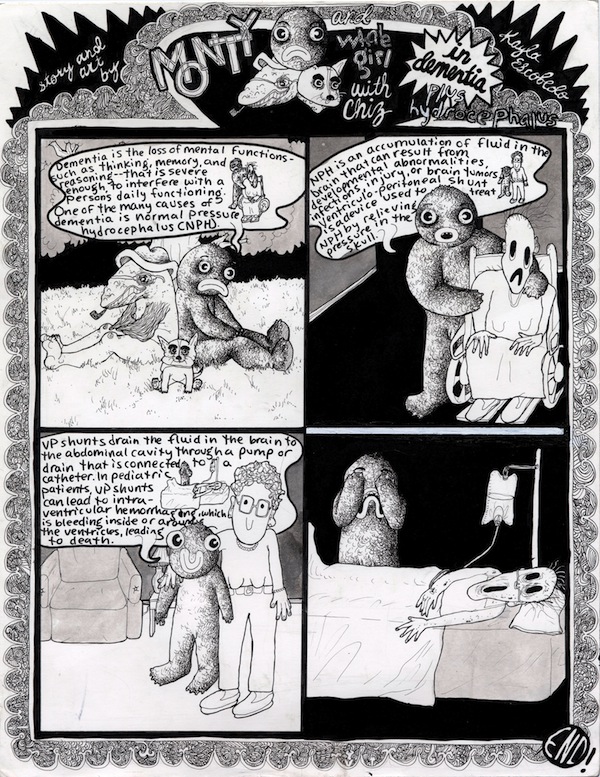 story and
art by
MONTTY
and
whale
girl
with
Chiz
in
dementia
plus
hydrocephalus
Kayla
Escobedo
Dementia is the loss of mental functions-
such as thinking, memory, and
reasoning--that is severe
enough to interfere with a
persons daily functioning.
One of the many causes of
dementia is normal pressure
hydrocephalus CNPH).
NPH is an accumulation of fluid in the
brain that can result from
developmental abnormalities,
infections, injury, or brain tumors.
Ventriculo-peritoneal shunt
is a device used to treat
NPH by relieving
pressure in the
skull.
VP shunts drain the fluid in the brain to
the abdominal cavity through a pump or
drain that is connected to a
catheter. In pediatric
patients, VP shunts
can lead to intra-
ventricular hemorrhaging, which
is bleeding inside or around
the ventricles, leading
to death.
END!